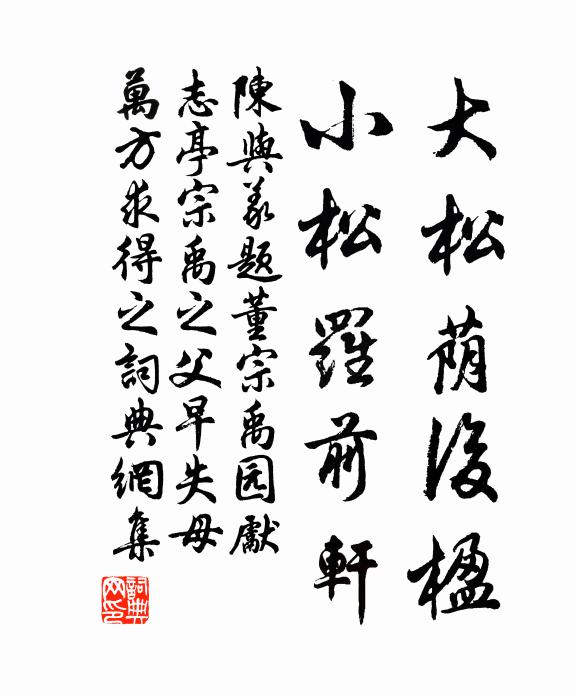 大松荫後楹
小松羅前軒
陳與義题董宗禹园獻
志亭宗禹之父早失母
萬方求得之詞典網集
詞典网印